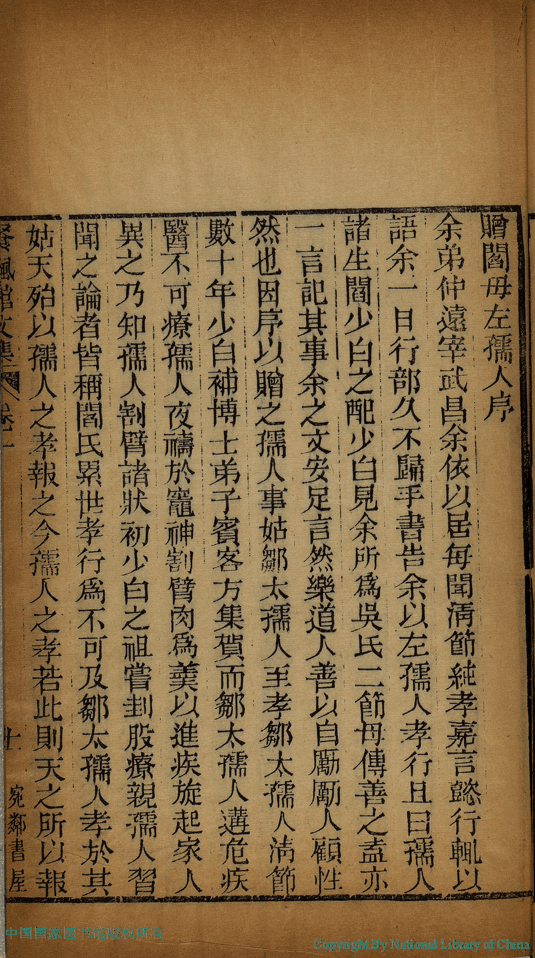 贈閻母左孺人序
余弟仲遠宰武昌余依以居每聞淸節純孝嘉言懿行輒以
語余一日行部久不歸手書告余以左孺人孝行且曰孺人
諸生閻少白之配少白見余所爲吳氏二節母傳善之盍亦
一言記其事余之文安足言然樂道人善以自勵勵人顧性
然也因序以贈之孺人事姑鄒太孺人至孝鄒太孺人淸節
數十年少白補博士弟子賓客方集賀而鄒太孺人遘危疾
醫不可療孺人夜禱於竈神割臂肉爲羹以進疾旋起家人
異之乃知孺人割臂諸狀初少白之祖嘗刲股療親孺人習
聞之論者皆稱閻氏累世孝行爲不可及鄒太孺人孝於其
姑天殆以孺人之孝報之今孺人之孝若此則天之所以報
餐楓館文集 卷二
宛鄰書屋
中国国家图书馆
Copyright By National Library of China